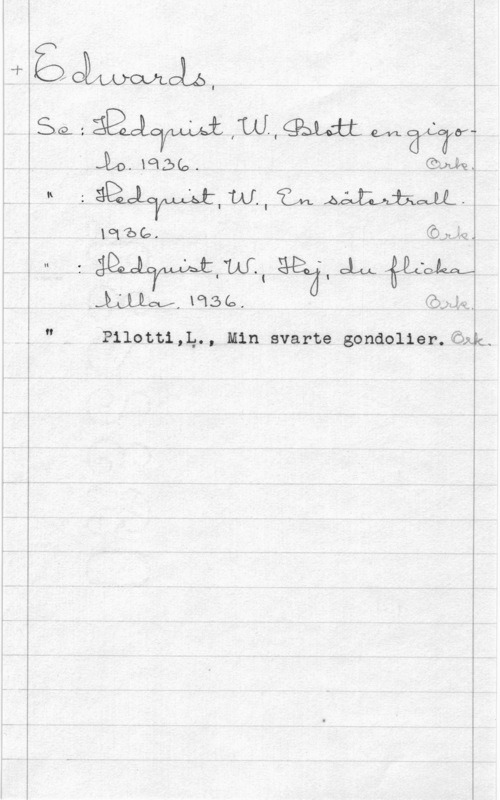 + Edwards,
Se : Hedquist, W., Blott en gigo-
lo. 1936. Ork.
" : Hedquist, W., En sätertrall.
1936. Ork.
" : Hedquist, W., Hej, du flicka
lilla. 1936. Ork.
" Pilotti,L., Min svarte gondolier. Ork.